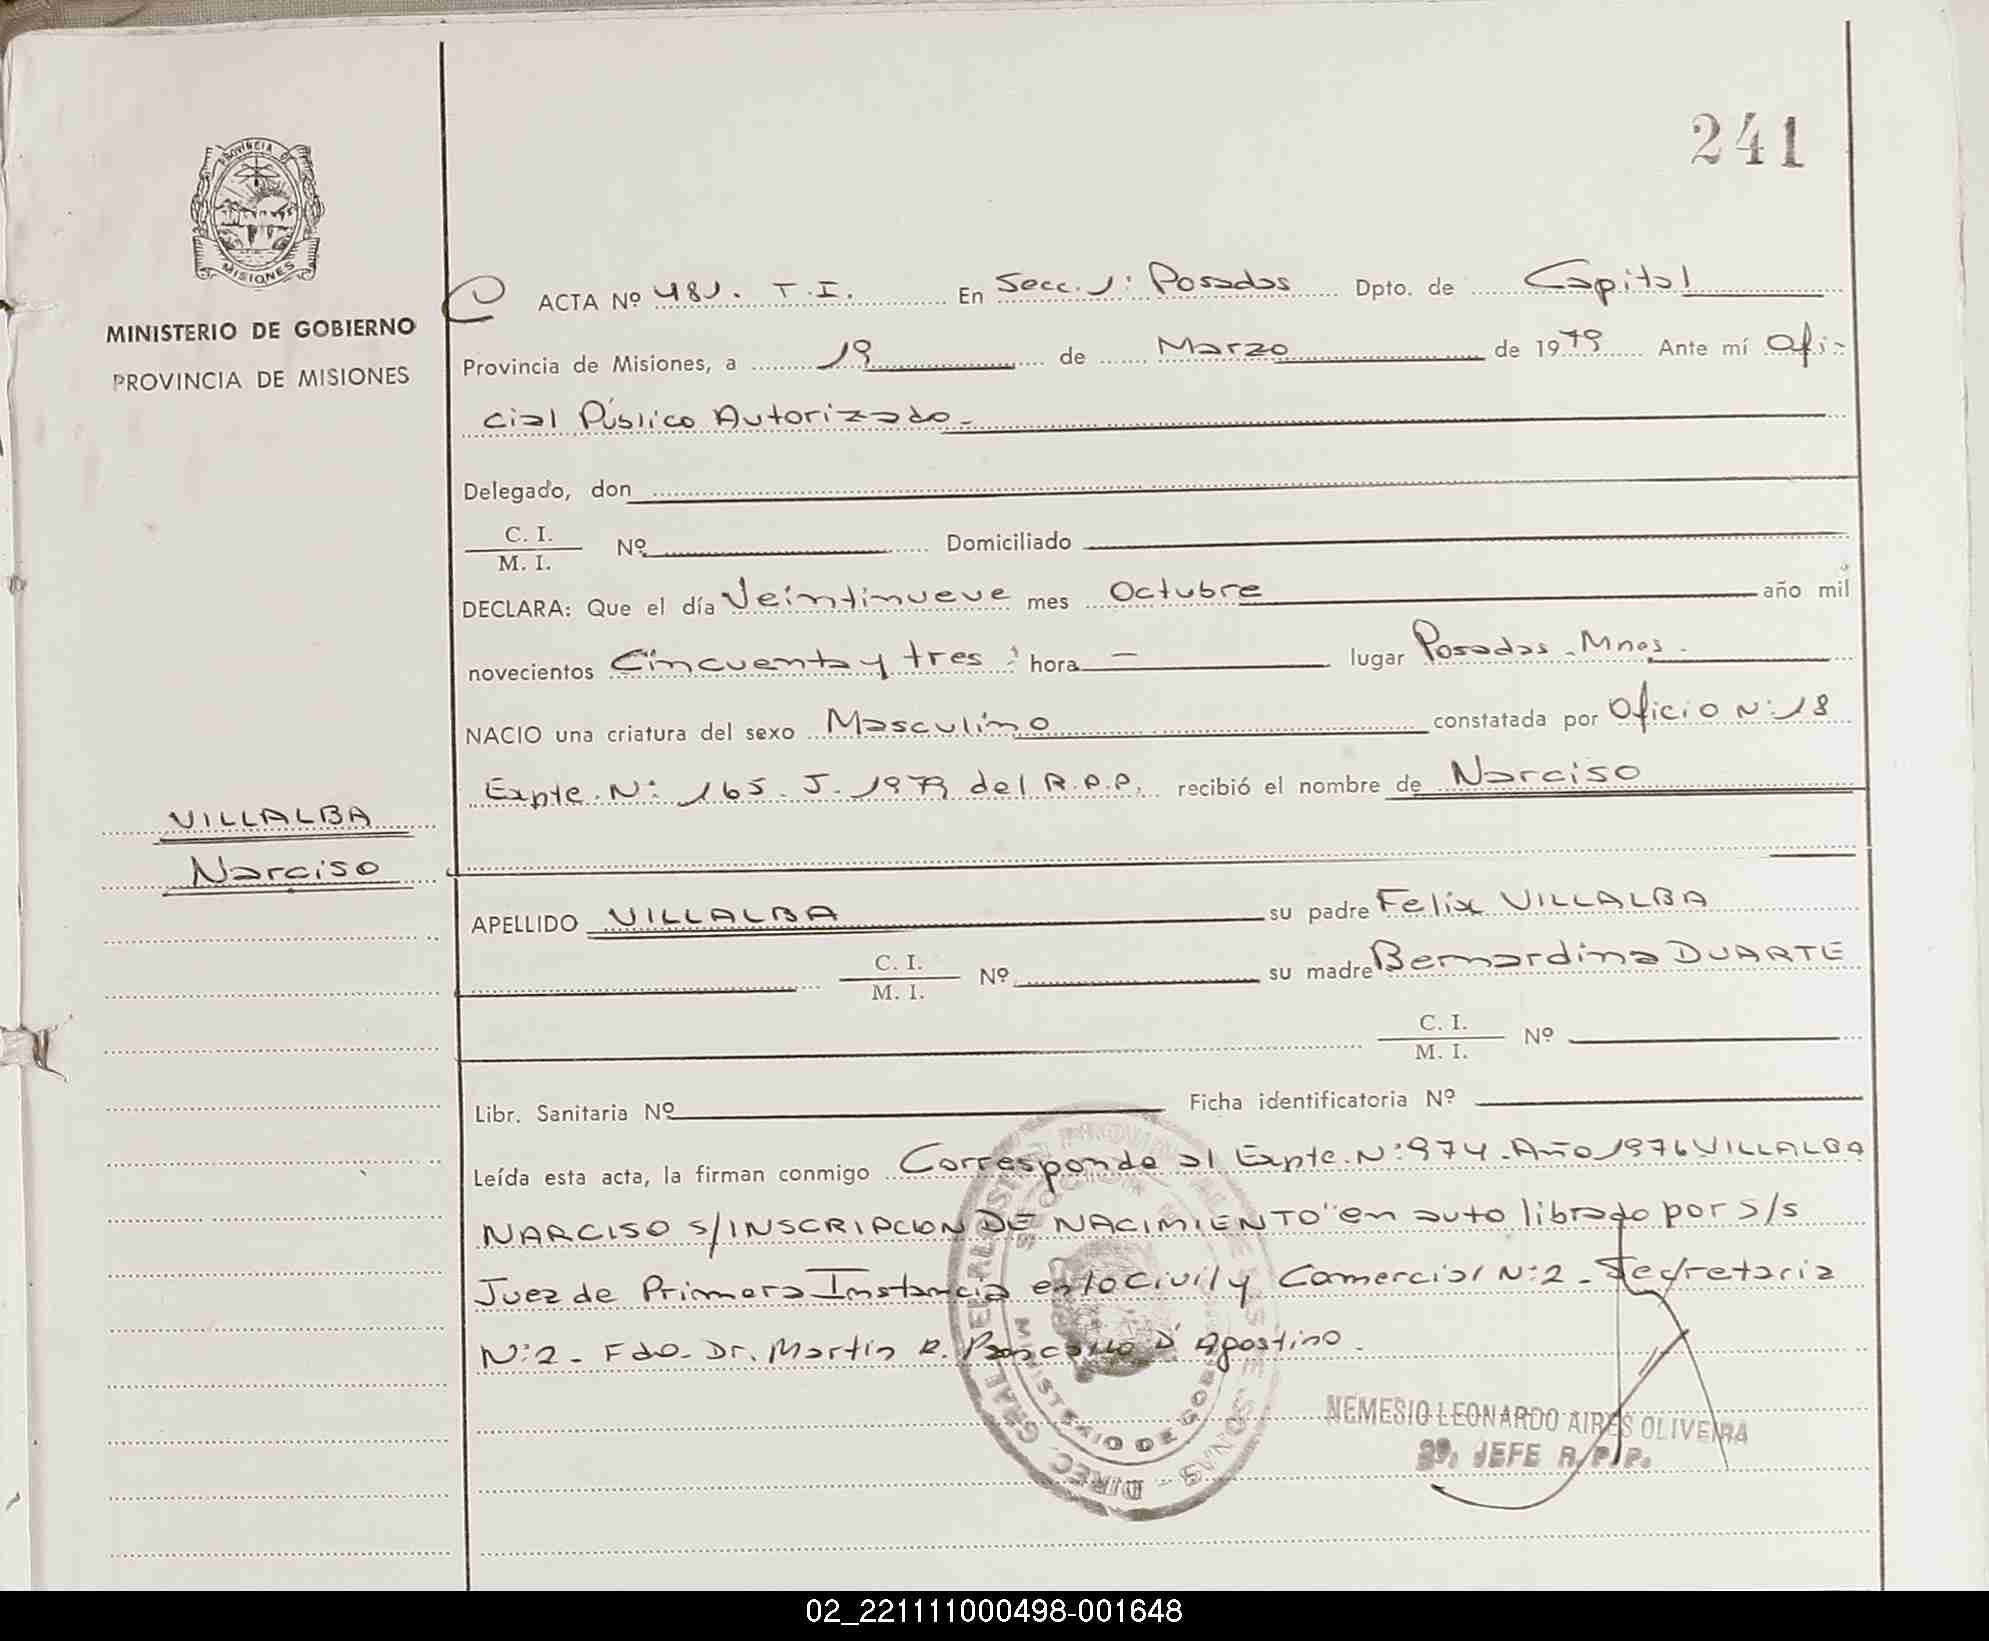 241
PROVINCIA DE
MISIONES
MINISTERIO DE GOBIERNO
PROVINCIA DE MISIONES
ACTA Nº 481. T.I. En Secc. 1: Posadas Dpto. de Capital
Provincia de Misiones, a 19 de Marzo de 1979 Ante mí Ofi-
cial Público Autorizado.
Delegado, don
C. I.
M. I. Nº Domiciliado
DECLARA: Que el día Veintinueve mes Octubre año mil
novecientos Cincuenta y tres hora — lugar Posadas. Mnes.
NACIO una criatura del sexo Masculino constatada por Oficio N: 18
Expte. N: 165. J. 1979 del R.P.P. recibió el nombre de Narciso
VILLALBA
Narciso
APELLIDO VILLALBA su padre Felix VILLALBA
C. I.
M. I. Nº su madre Bernardina DUARTE
C. I.
M. I. Nº
Libr. Sanitaria Nº Ficha identificatoria Nº
Leída esta acta, la firman conmigo Corresponde al Expte. N: 974. Año 1976 VILLALBA
NARCISO s/INSCRIPCION DE NACIMIENTO" en auto librado por S/s
Juez de Primera Instancia en lo Civil y Comercial N: 2 - Secretaria
N: 2 - Fdo. Dr. Martin R. D' Agostino.
NEMESIO LEONARDO AIRES OLIVEIRA
2º. JEFE R.P.P.
02_221111000498-001648